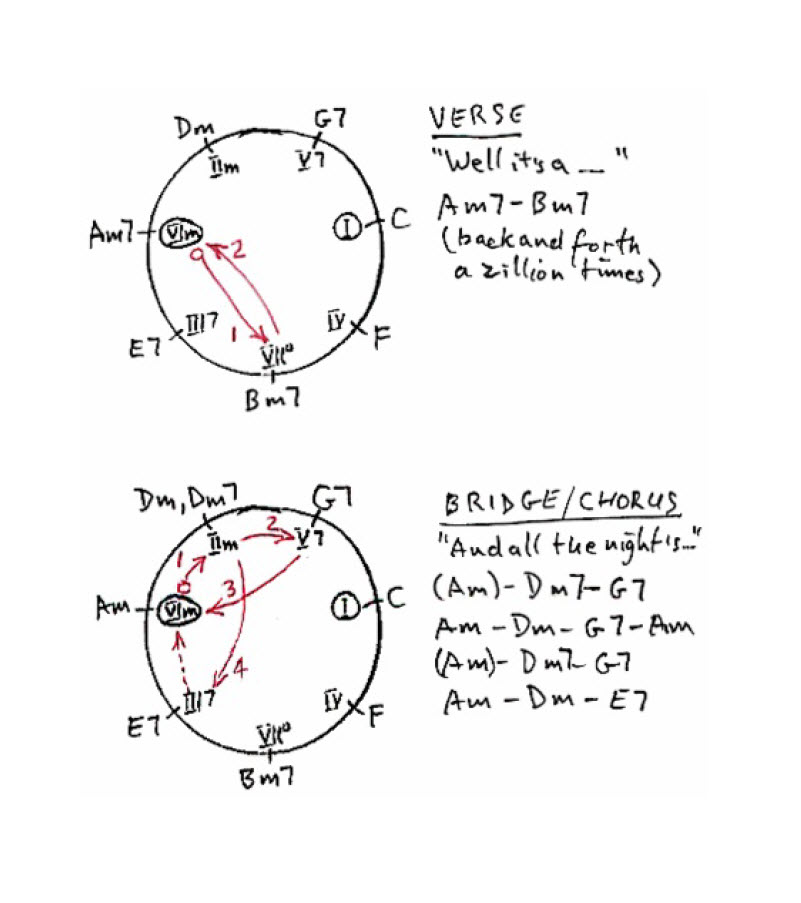 Dm
G7
IIm
V7
Am7
VIm
I
C
2
1
III7
IV
E7
VII°
F
Bm7
VERSE
"Well it's a --- "
Am7 - Bm7
(back and forth
a zillion times)
Dm, Dm7
G7
IIm
2
V7
1
3
Am
VIm
I
C
4
III7
IV
E7
VII°
F
Bm7
BRIDGE/CHORUS
"And all the night's..."
(Am) - Dm7 - G7
Am - Dm - G7 - Am
(Am) - Dm7 - G7
Am - Dm - E7